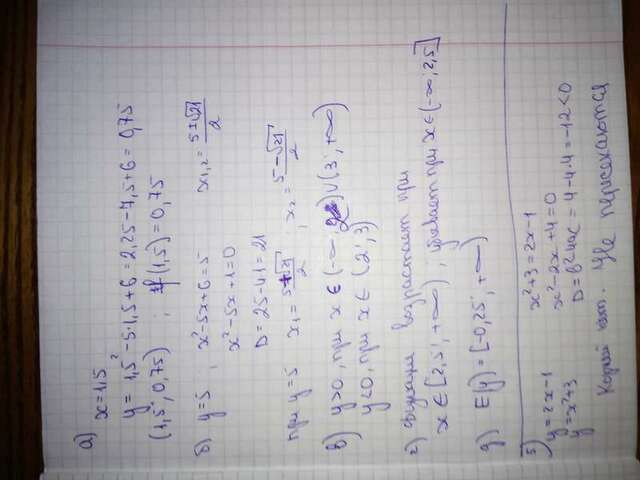 а)
x=1,5
y = 1,5² -5·1,5+6 = 2,25-7,5+6 = 0,75
(1,5; 0,75) ; f(1,5) = 0,75
б) y=5, x²-5x+6=5 x₁,₂ = (5±√21)/2
x²-5x+1=0
D = 25-4·1=21
при y=5 x₁ = (5+√21)/2 ; x₂ = (5-√21)/2
в) y>0, при x ∈ (-∞; 2)∪(3; +∞)
y<0, при x ∈ (2; 3)
г) Функция возрастает при
x ∈ [2,5; +∞) ; убывает при x∈(-∞; 2,5]
д) E(y) = [-0,25; +∞)
5)
x²+3=2x-1
y=2x-1
x²-2x+4=0
y=x²+3
D=b²-4ac = 4-4·4=-12<0
Корней нет. Не пересекаются